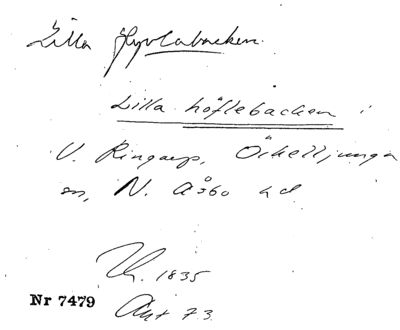 Lilla Hyvlabacken.
Lilla höflebacken i
V. Ringarp, Örkelljunga
sn, N. Åsbo hd
1835
Nr 7479 Akt 73.